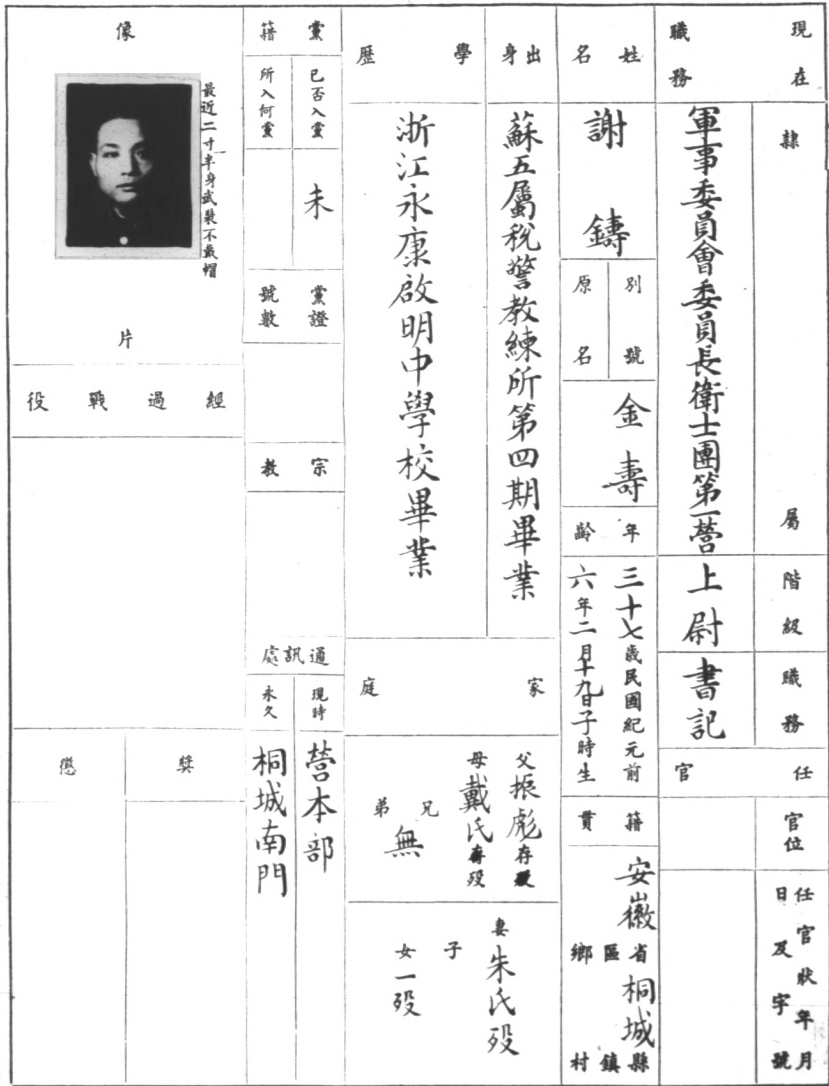 現在職務
隸屬
軍事委員會委員長衛士團第一營
階級
上尉
職務
書記
任官
官位
任官狀年月日及字號
姓名
謝鑄
別號
原名
金壽
年齡
三十七歲民國紀元前
六年二月十九日子時生
籍貫
安徽省桐城縣
區鎮
鄉村
出身
蘇五屬稅警教練所第四期畢業
學歷
浙江永康啟明中學校畢業
家庭
父振彪存歿
母戴氏存歿
兄弟
無
妻朱氏歿
子
女一歿
黨籍
已否入黨
所入何黨
未
黨證號數
宗教
通訊處
現時
永久
營本部
桐城南門
像片
最近二寸半身武裝不戴帽
經過戰役
獎
懲